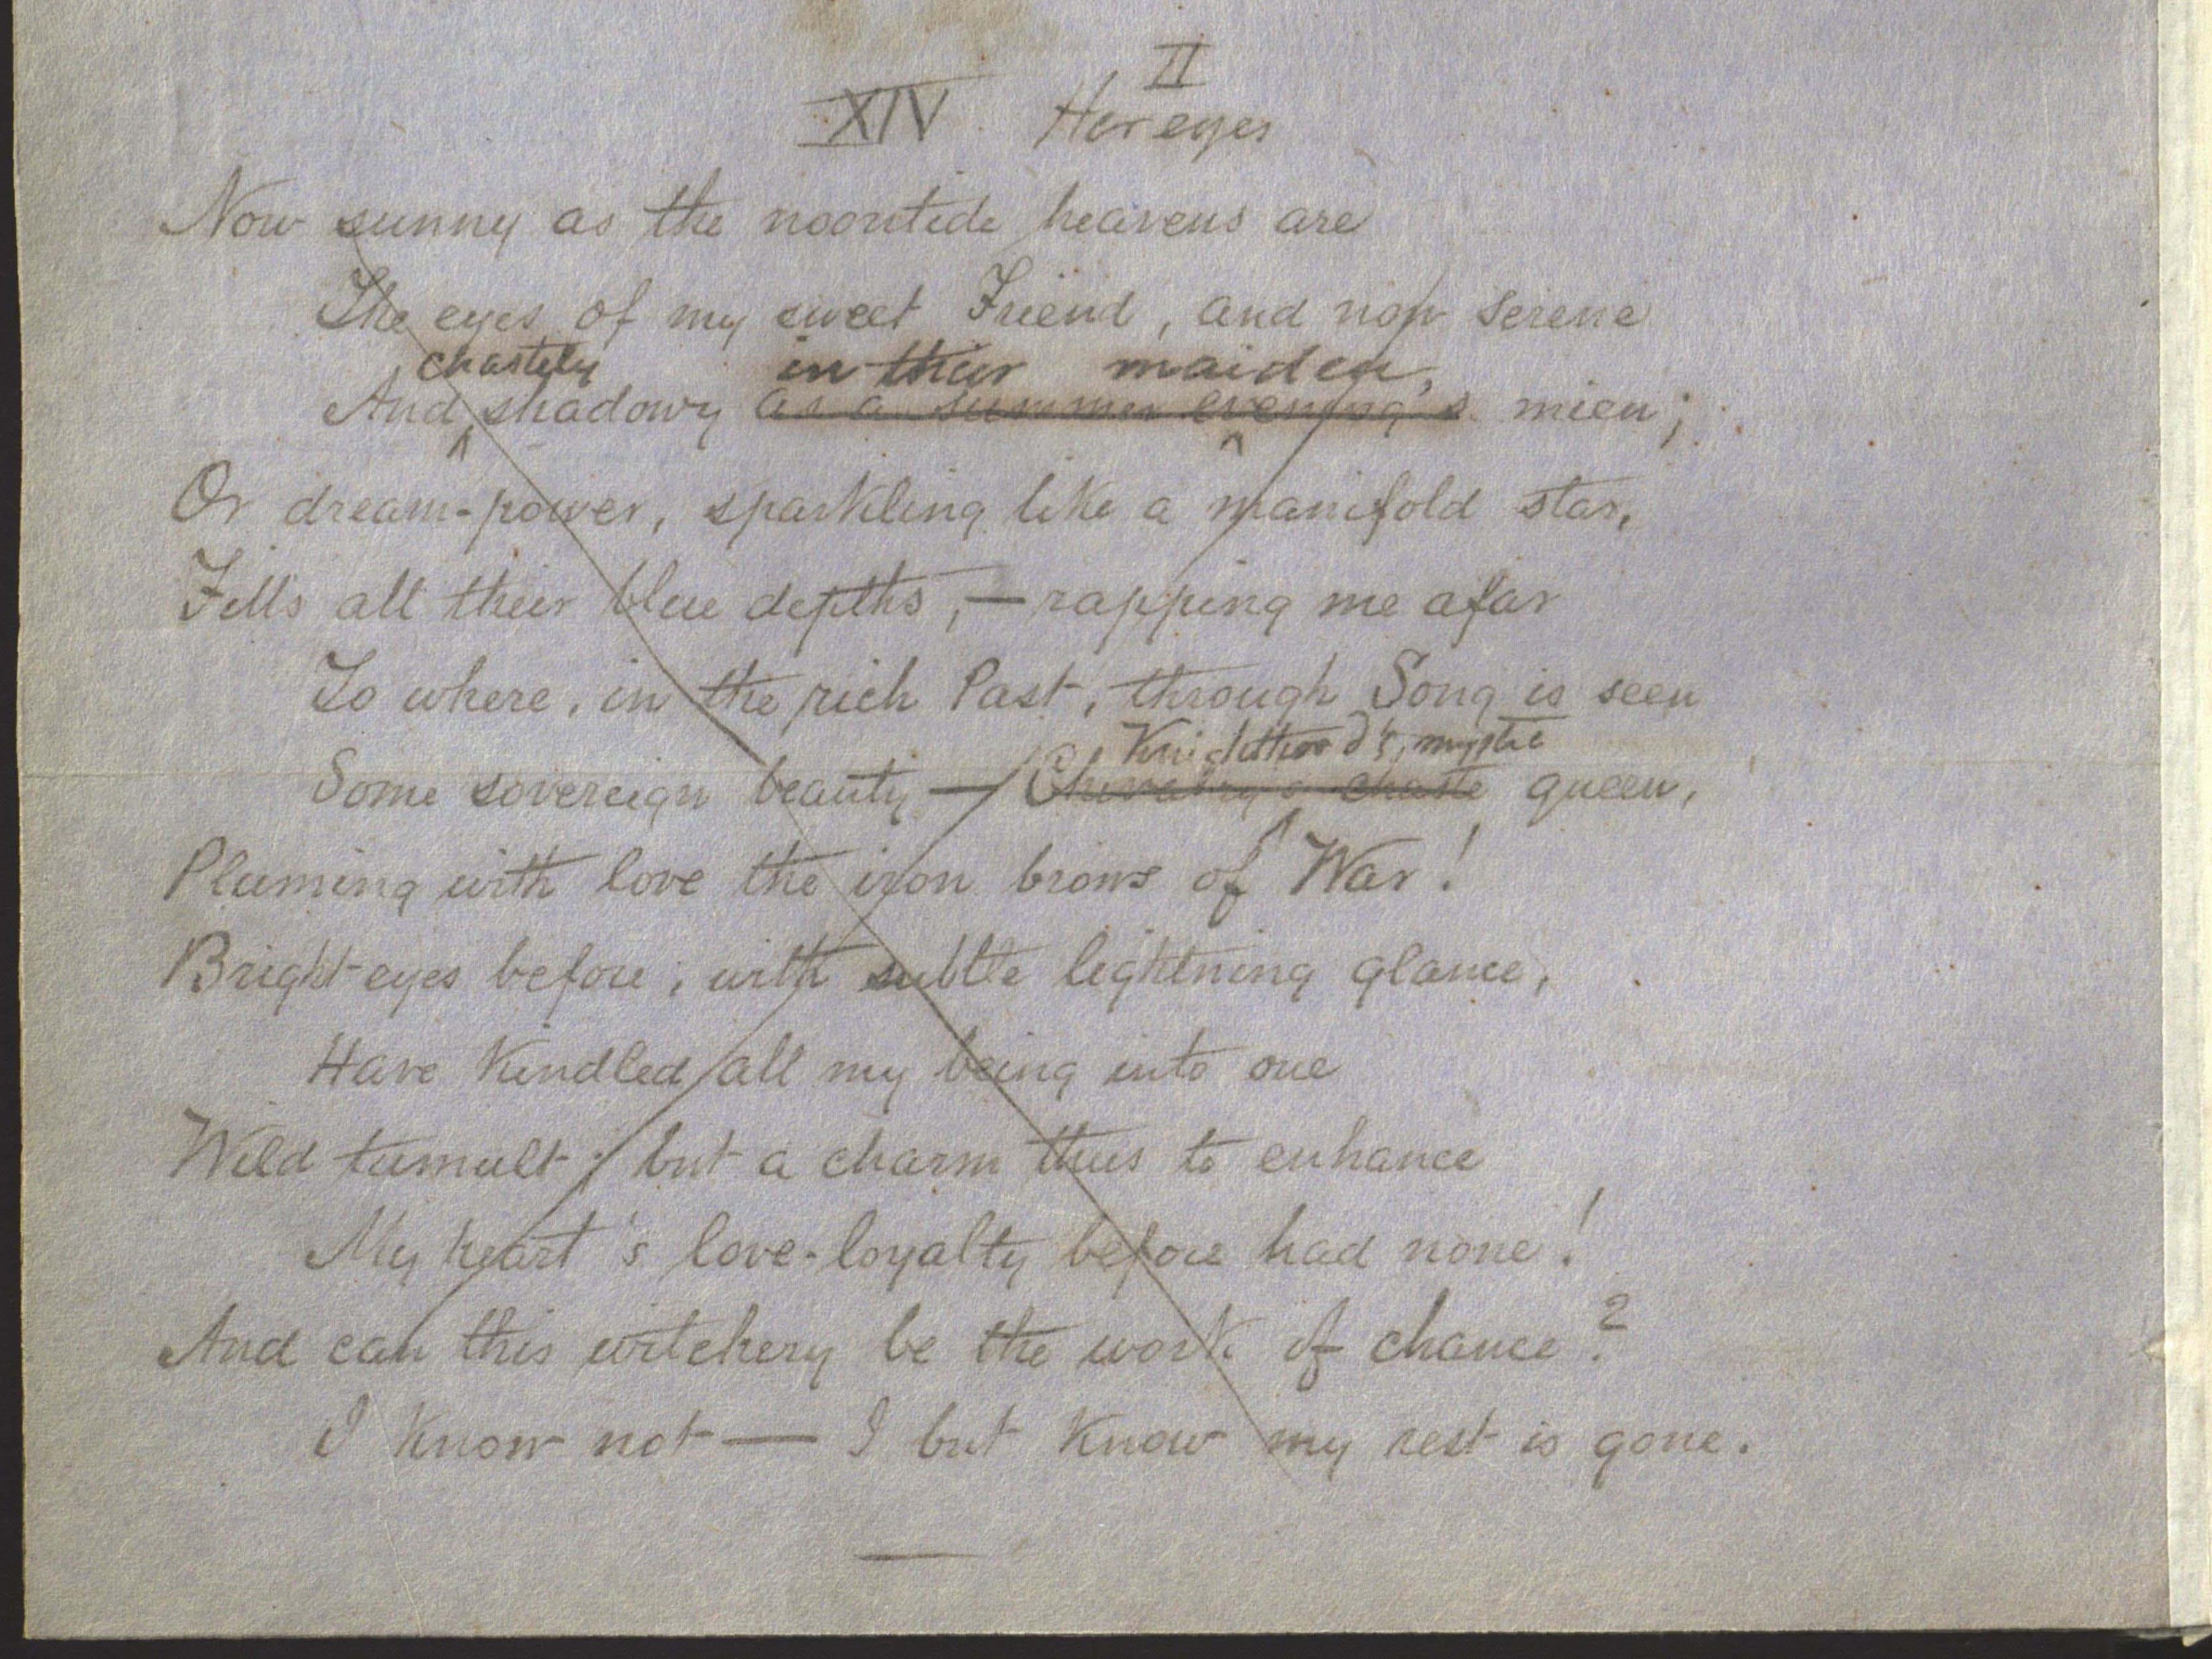 II
XIV Her eyes
Now sunny as the noontide heavens are
The eyes of my sweet Friend, and now serene
chastely in their maiden,
And shadowy as a summer evening's mien;
Or dream-power, sparkling like a manifold star,
Fills all their blue depths,—rapping me afar
To where, in the rich Past, through Song is seen
Knighthood's, mystic
Some sovereign beauty — Chivalry's chaste queen,
Pluming with love the iron brows of War!
Bright eyes before, with subtle lightning glance,
Have Kindled all my being into one
Wild tumult; but a charm thus to enhance
My heart's love-loyalty before had none!
And can this witchery be the work of chance?
I Know not — I but Know my rest is gone.